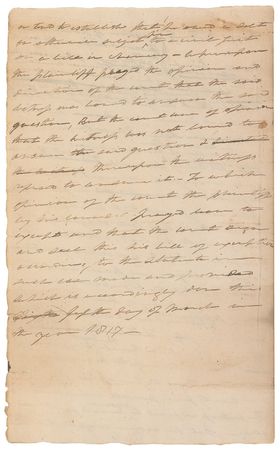 or tend to establish that he owed a debt
or otherwise subject him to a civil suit
or a bill in chancery — whereupon
the plaintiff prayed the opinion and
direction of the court that the said
witness was bound to answer the said
question, But the court were of opinion
that the witness was not bound to
answer the said question &
thereupon the witness
refused to answer it — To which
opinion of the court the plaintiff
by his counsel prayed leave to
except and that the court sign
and seal this his bill of exception
according to the statute in
such case made and provided
which is accordingly done this
fifth day of March in
the year 1817 —